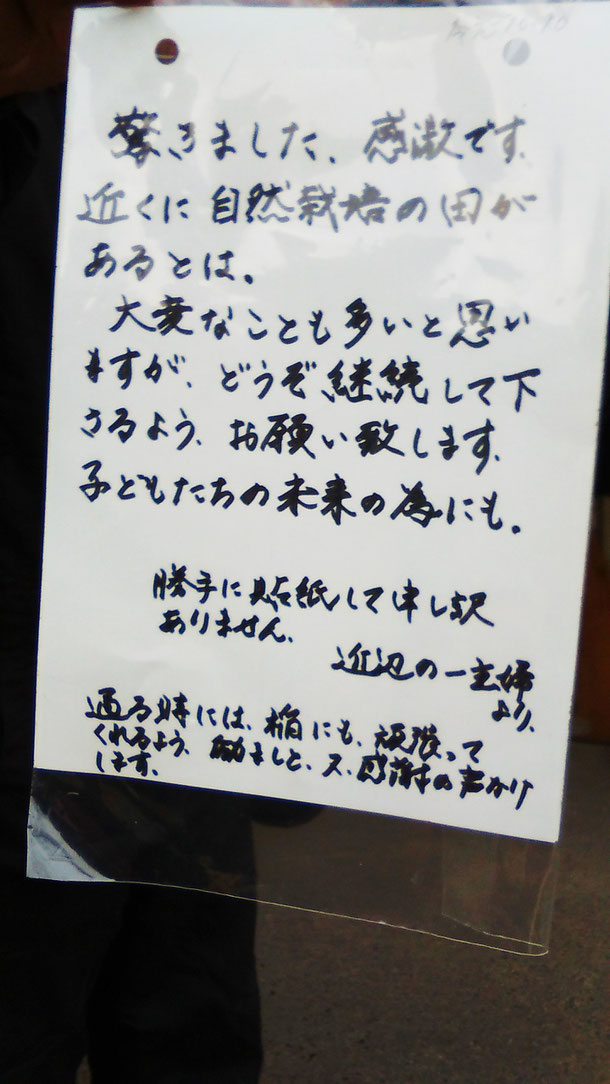 驚きました、感激です、
近くに自然栽培の田が
あるとは。
大変なことも多いと思い
ますが、どうぞ継続して下
さるよう、お願い致します、
子どもたちの未来の為にも。
勝手に貼紙して申し訳
ありません、
近辺の一主婦
より、
通る時には、稲にも、頑張って
くれるよう、励ましと、又、感謝の声かけ
します、